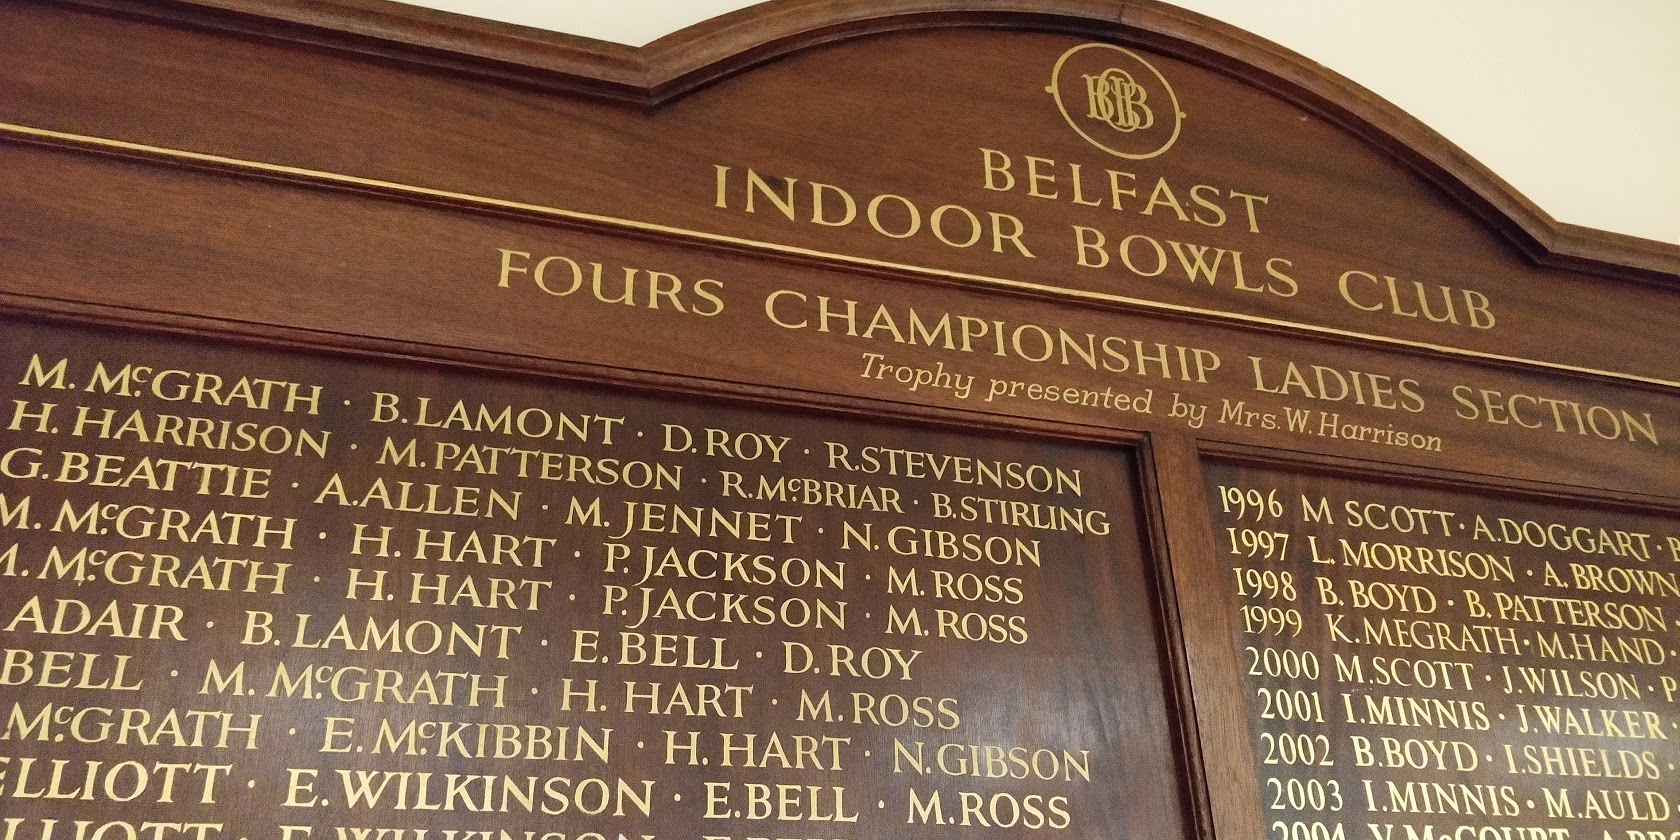 BELFAST
INDOOR BOWLS CLUB
FOURS CHAMPIONSHIP LADIES SECTION
Trophy presented by Mrs. W. Harrison
M. McGRATH · B. LAMONT · D. ROY · R. STEVENSON
H. HARRISON · M. PATTERSON · R. McBRIAR · B. STIRLING
G. BEATTIE · A. ALLEN · M. JENNET · N. GIBSON
M. McGRATH · H. HART · P. JACKSON · M. ROSS
M. McGRATH · H. HART · P. JACKSON · M. ROSS
ADAIR · B. LAMONT · E. BELL · D. ROY
BELL · M. McGRATH · H. HART · M. ROSS
McGRATH · E. McKIBBIN · H. HART · N. GIBSON
ELLIOTT · E. WILKINSON · E. BELL · M. ROSS
1996 M SCOTT · A. DOGGART ·
1997 L. MORRISON · A. BROWN
1998 B. BOYD · B. PATTERSON
1999 K. MEGRATH · M. HAND ·
2000 M. SCOTT · J. WILSON ·
2001 I. MINNIS · J. WALKER
2002 B. BOYD · I. SHIELDS ·
2003 I. MINNIS · M. AULD
2004